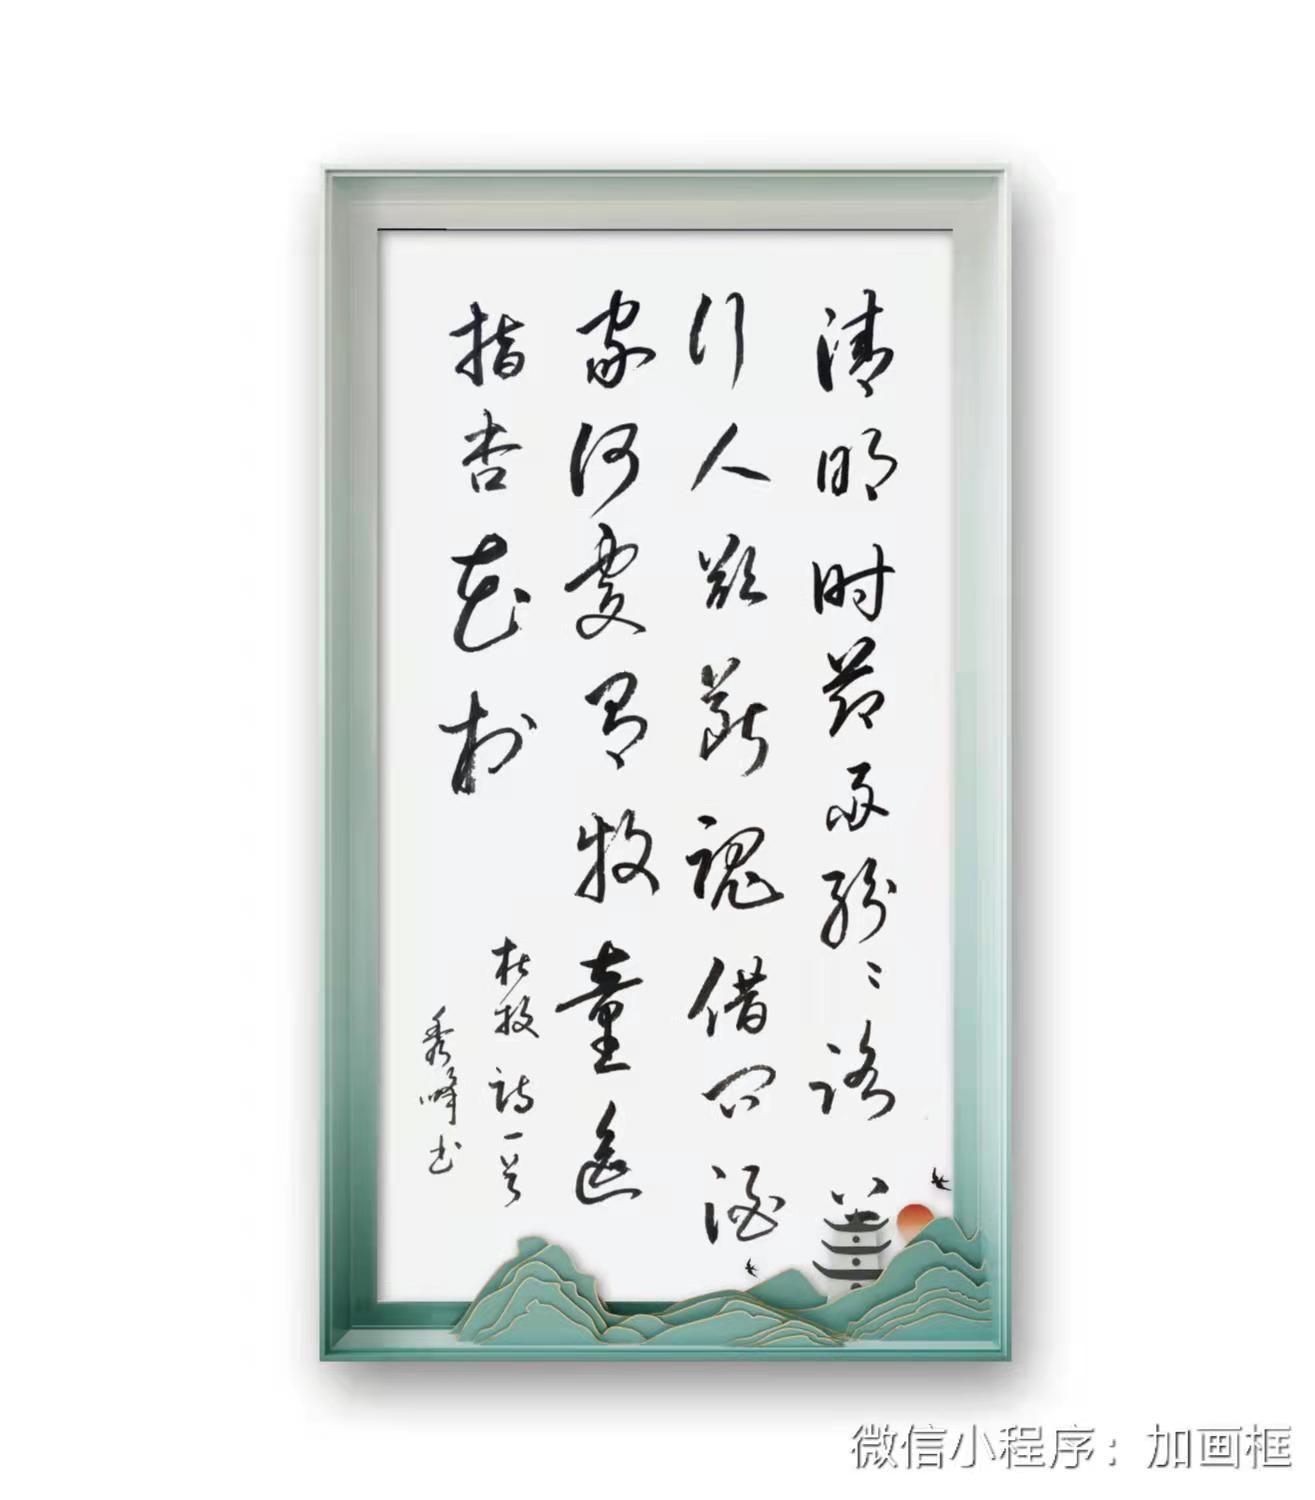 清明时节雨纷〻路
行人欲断魂借问酒
家何處有牧童遥
指杏花村
杜牧诗一首
秀峰书
微信小程序：加画框